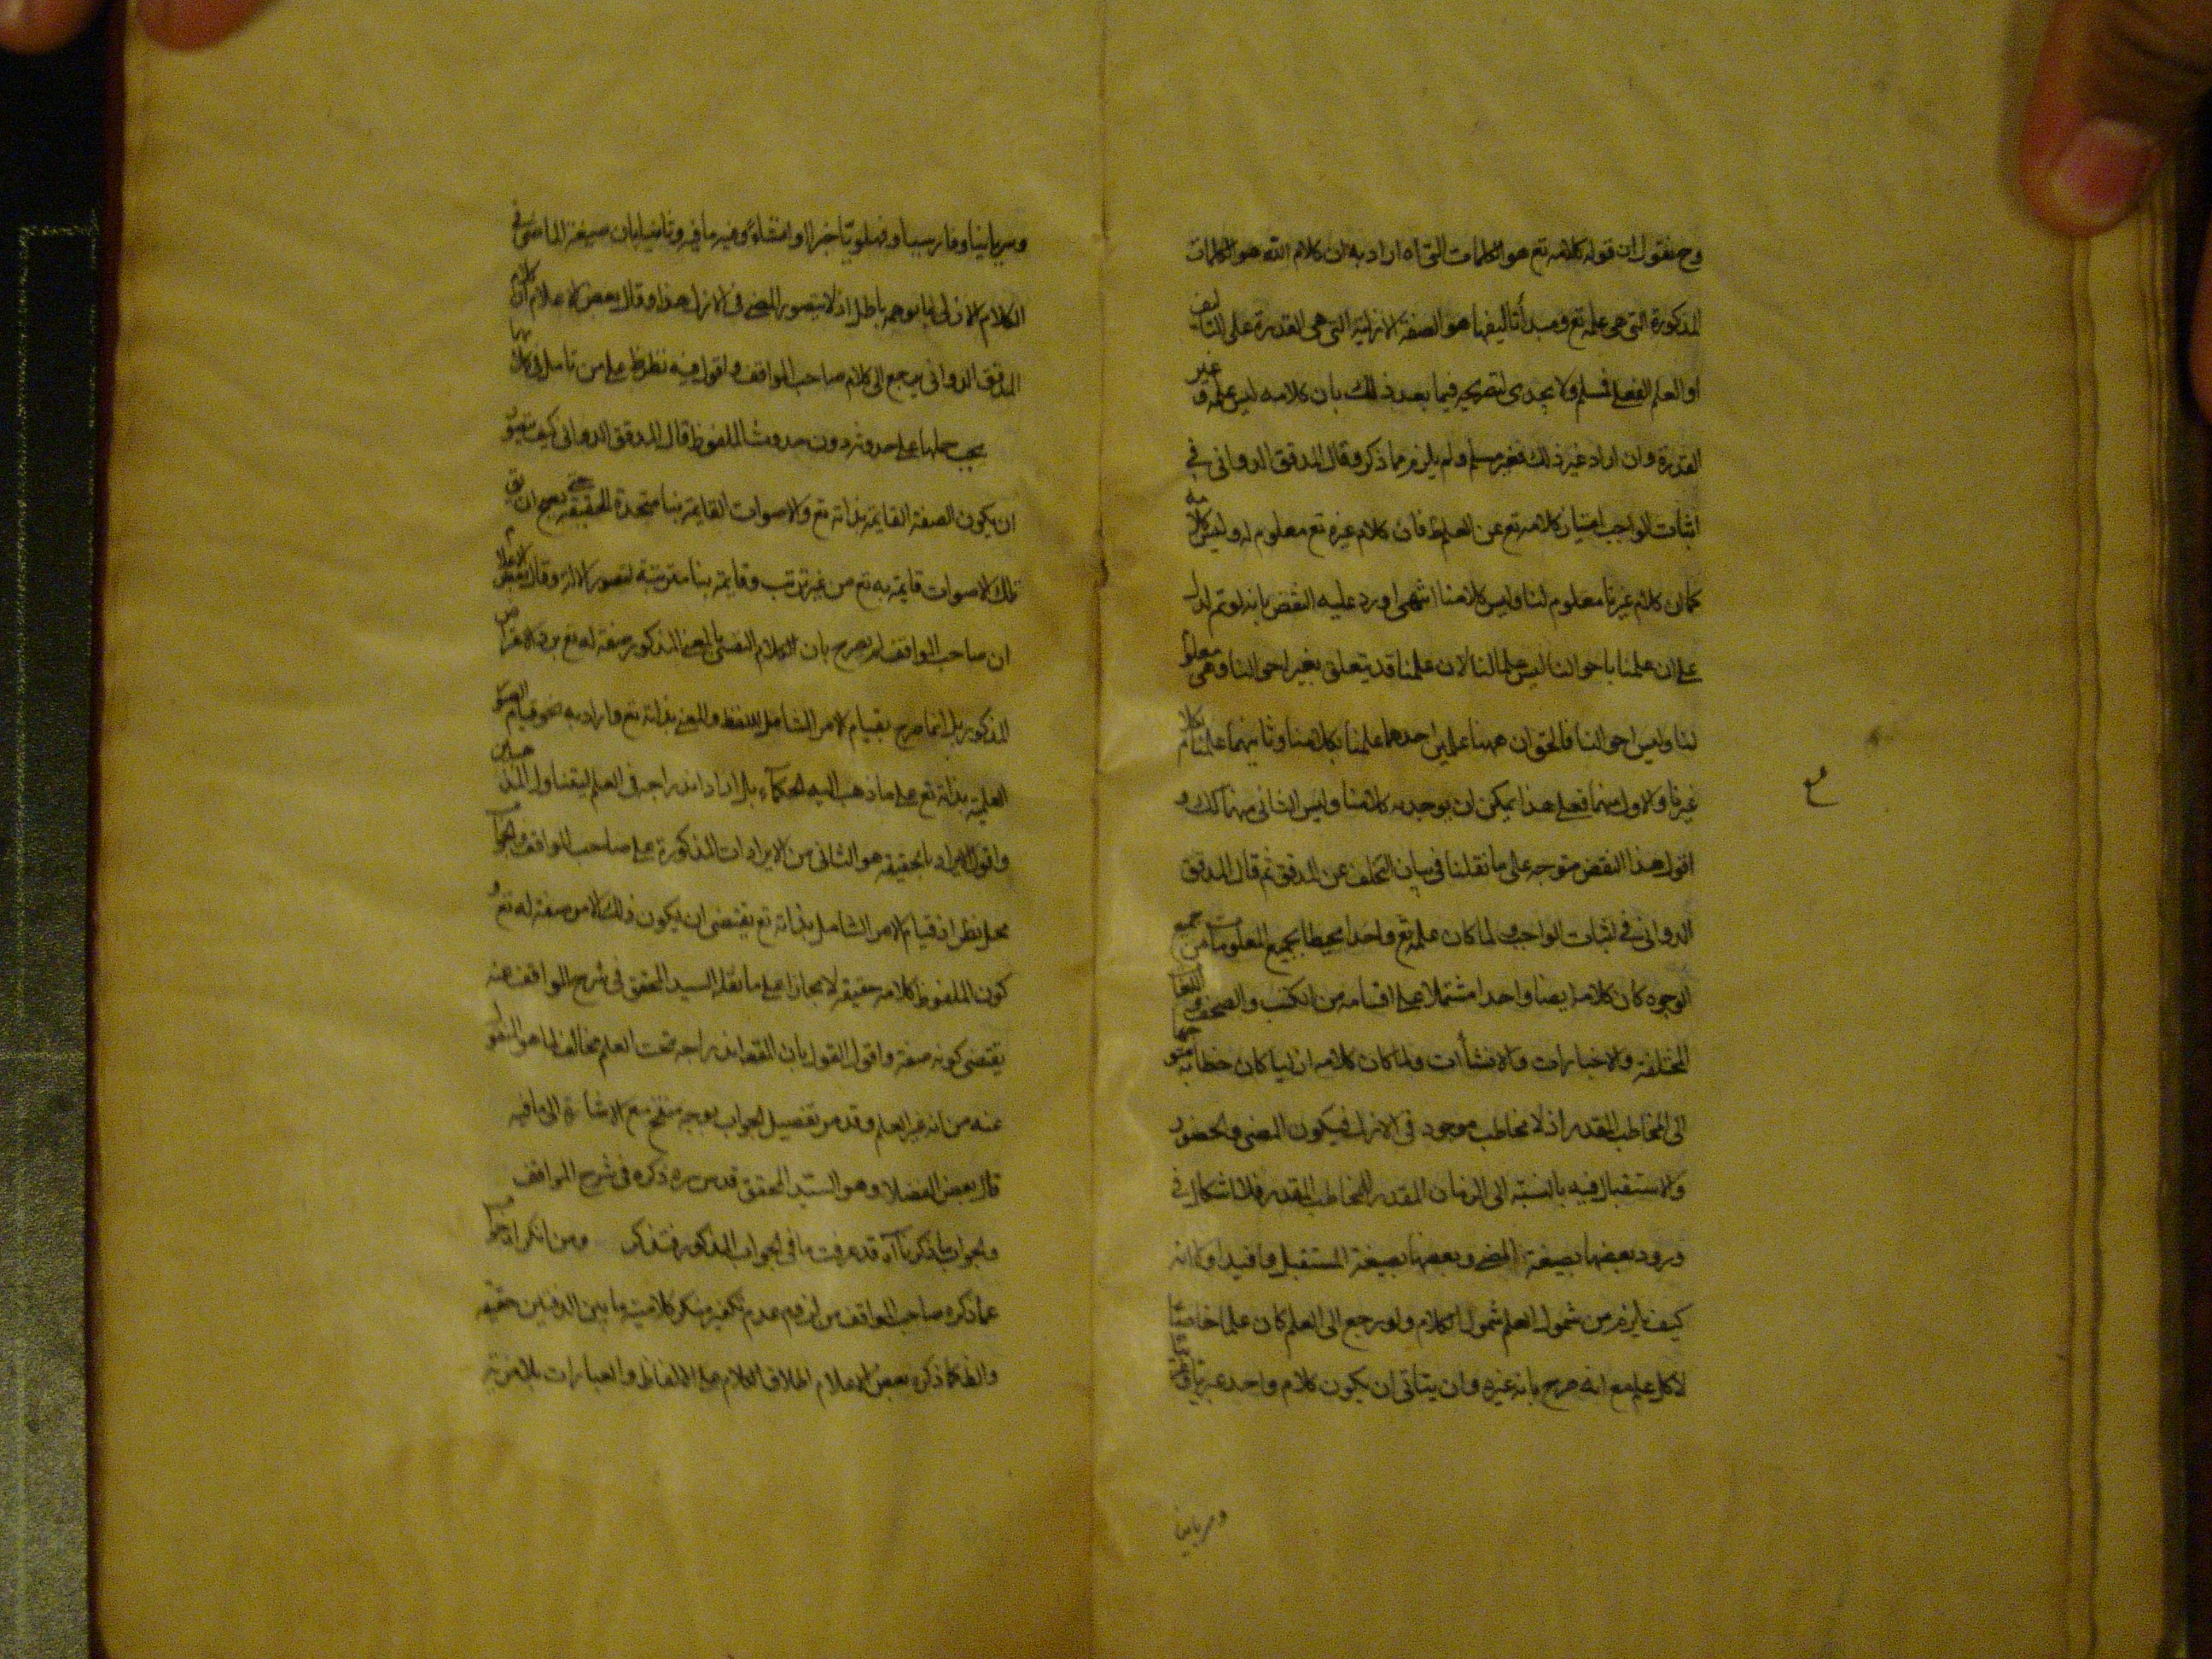 وح نقول ان قوله كلامه تع هو الكلمات التى اه اراد به ان كلام الله هو الكلمات
المذكورة التى هى علمه تع ومبدأ تاليفها هو الصفة الازلية التى هى القدرة على التاليف
او العلم الفعلى فمسلم ولا يجدى لتصريحه فيما بعد ذلك بان كلامه ليس علمه و غير
القدرة وان اراد غير ذلك فغير مسلم ولم يلزم مما ذكر وقال المدقق الدوانى فى
اثبات الواجب امتياز كلامه تع عن العلم ظ فان كلام غيره تع معلوم له وليس كلامه
كما ان كلام غيرنا معلوم لنا وليس كلامنا انتهى اورد عليه النقض بانه لو تم لدل
على ان علمنا باحوالنا ليس علما لنا لان علمنا قد يتعلق بغير احوالنا وهى معلو
لنا وليس احوالنا فالحق ان ههنا علمين احدهما علمنا بكلامنا وثانيهما علمنا بكلام
غيرنا والاول منهما فعلى هذا يمكن ان يوجد به كلامنا وليس الثانى منهما كك و
اقول هذا النقض متوجه على ما نقلنا فى بيان التخلف عن المدقق ثم قال المدقق
الدوانى فى اثبات الواجب و لما كان علمه تع واحدا محيطا بجميع المعلومات من جميع
الوجوه كان كلامه ايضا واحدا مشتملا على اقسامه من الكتب والصحف و اللغا
المختلفة والاخبارات والانشاآت ولما كان كلامه ازليا كان خطابه متوجها
الى المخاطب المقدر اذ لا مخاطب موجود فى الازل فيكون المضى والحضور
والاستقبال فيه بالنسبة الى الزمان المقدر للمخاطب المقدر فلا اشكال فى
ورود بعضها بصيغة المضى وبعضها بصيغة المستقبل وفيه اولا انه
كيف يلزم من شمول العلم شمول الكلام ولو رجع الى العلم كان علما خاصا
لا كل علم مع انه صرح بانه غيره وان يتاتى ان يكون كلام واحد عبريا
وسريانيا
وسريانيا وفارسيا وفهلويا خبرا او انشاء وفيه ما فيه وثانيا بان صيغة الماضى فى
الكلام الازلى بما توهمه باطل اذ لا يتصور المضى فى الازل هذا وقال بعض الاعلام
المدقق الدوانى يرجع الى كلام صاحب المواقف واقول فيه نظر ظ على من تامل فى كلا
يجب حملها على حدوثه دون حدوث الملفوظ قال المدقق الدوانى كيف يتصو
ان يكون الصفة القايمة بذاته تع والاصوات القايمة بنا متحدة الحقيقة
تلك الاصوات قايمة به تع من غير ترتب وقايمة بنا مترتبة لقصور الالة وقال بعض الاعلا
ان صاحب المواقف لم يصرح بان الكلام النفسى بالمعنى المذكور صفة له تع
المذكور بل انما صرح بقيام الامر الشامل للفظ والمعنى بذاته تع واراد به نحو قيام الصو
العلمية بذاته تع على ما ذهب اليه الحكماء بل اراد اندراجه فى العلم ليتناول
واقول الايراد بالحقيقة هو الثانى من الايرادات المذكورة على صاحب المواقف
محل نظر اذ قيام الامر الشامل بذاته تع يقتضى ان يكون ذلك الامر صفة له تع و
كون الملفوظ كلامه حقيقة لا مجازا على ما نقله السيد المحقق فى شرح المواقف عنه
يقتضى كونه صفة واقول القول بان القصد اندراجه تحت العلم مخالف لما هو المنقو
عنه من انه غير العلم وقد مر تفصيل الجواب بوجه منقح مع الاشارة الى ما فيه
قال بعض الفضلا وهو السيد المحقق قدس سره ذكره فى شرح المواقف
والجواب ما ذكرنا اه قد عرفت ما فى الجواب المذكور فتذكر ومن انكر
عما ذكره صاحب المواقف من لزوم عدم تكفير منكر كلامية ما بين الدفتين حقيقة
والظ كما ذكره بعض الاعلام اطلاق الكلام على الالفاظ والعبارات